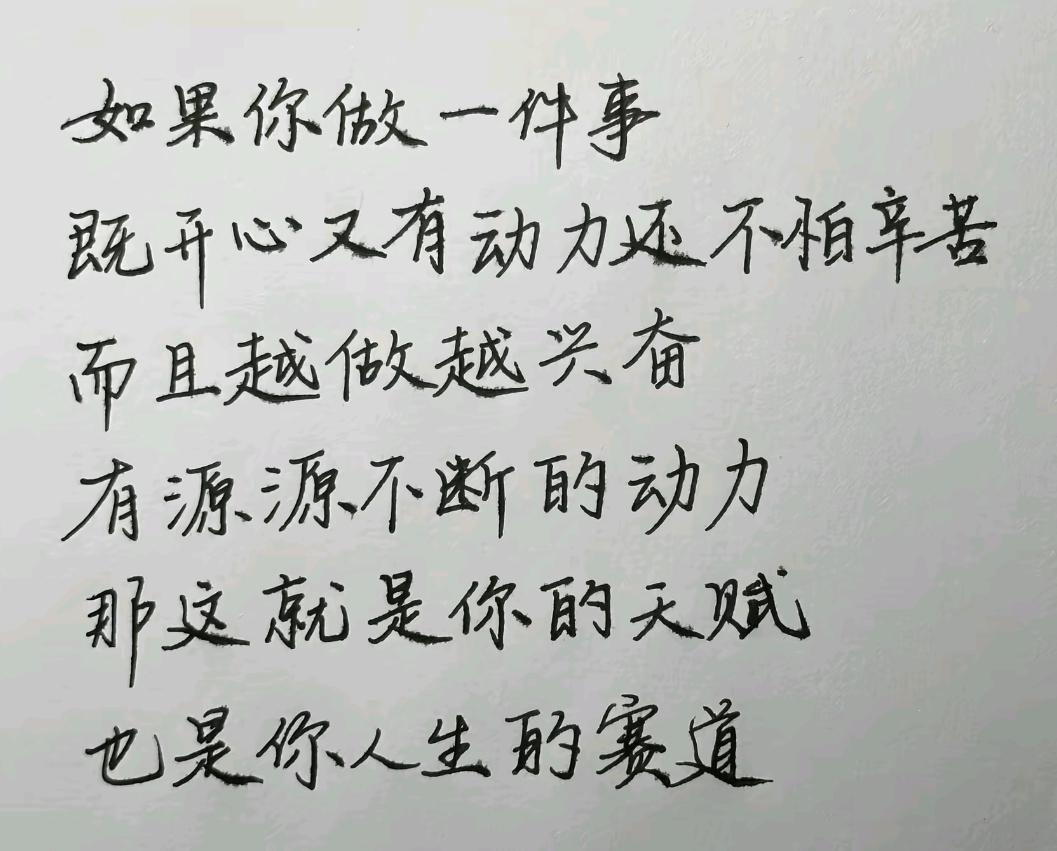 如果你做一件事
既开心又有动力还不怕辛苦
而且越做越兴奋
有源源不断的动力
那这就是你的天赋
也是你人生的赛道